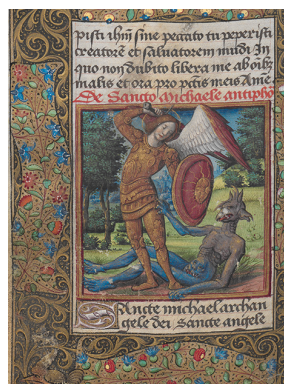 pisti ihm sine peccato tu peperisti
creatorē et saluatorem mūdi In
quo non dubito libera me ab oībȝ
malis et ora pro pctis meis Amē
De Sancto Michaele antiphō
Sancte michael archan
gele dei sancte angele